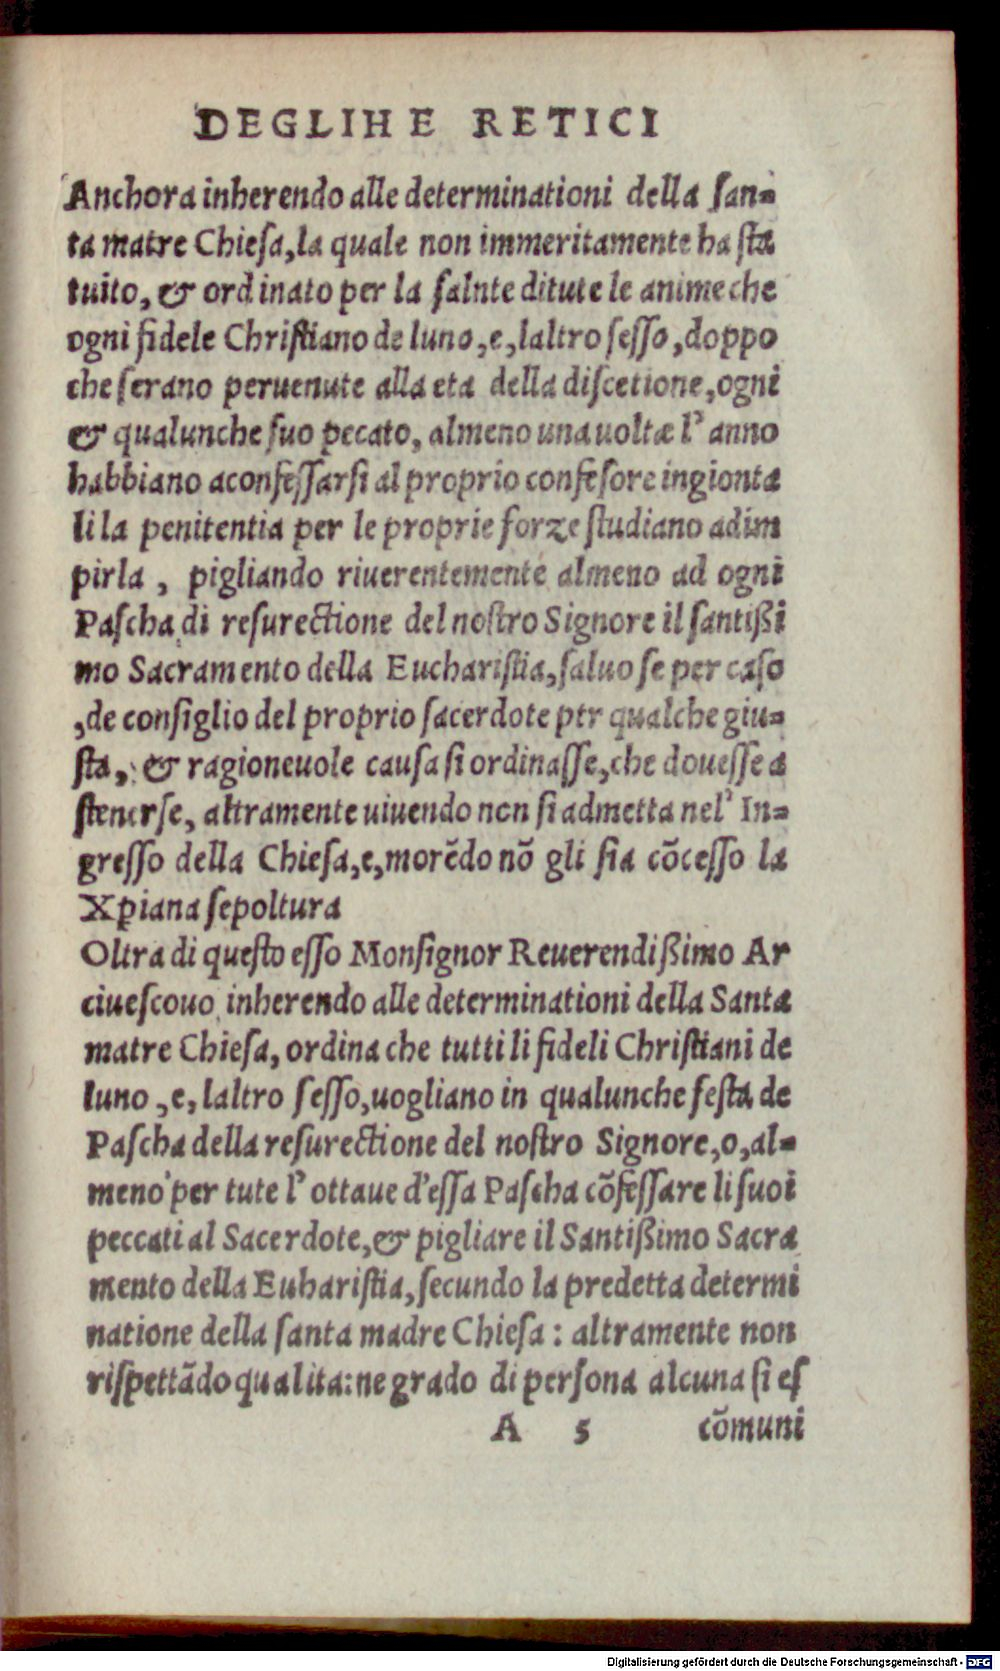 DEGLIHE RETICI
Anchora inherendo alle determinationi della san-
ta matre Chiesa, la quale non immeritamente ha sta
tuito, & ordinato per la salnte di tute le anime che
ogni fidele Christiano de luno, e, laltro sesso, doppo
che serano peruenute alla eta della discetione, ogni
& qualunche suo pecato, almeno una uolta l' anno
habbiano aconfessarsi al proprio confesore ingionta
li la penitentia per le proprie forze studiano adim
pirla, pigliando riuerentemente almeno ad ogni
Pascha di resurectione del nostro Signore il santißi
mo Sacramento della Eucharistia, saluo se per caso
, de consiglio del proprio sacerdote ptr qualche giu-
sta, & ragioneuole causa si ordinasse, che douesse a
stenerse, altramente uiuendo non si admetta nel' In-
gresso della Chiesa, e, morēdo nō gli sia cōcesso la
Xp̄iana sepoltura
Oltra di questo esso Monsignor Reuerendißimo Ar
ciuescouo inherendo alle determinationi della Santa
matre Chiesa, ordina che tutti li fideli Christiani de
luno, e, laltro sesso, uogliano in qualunche festa de
Pascha della resurectione del nostro Signore, o, al-
meno per tute l' ottaue d'essa Pascha cōfessare li suoi
peccati al Sacerdote, & pigliare il Santißimo Sacra
mento della Euharistia, secundo la predetta determi
natione della santa madre Chiesa: altramente non
rispettādo qualita: ne grado di persona alcuna si es
A 5 cōmuni
Digitalisierung gefördert durch die Deutsche Forschungsgemeinschaft - DFG